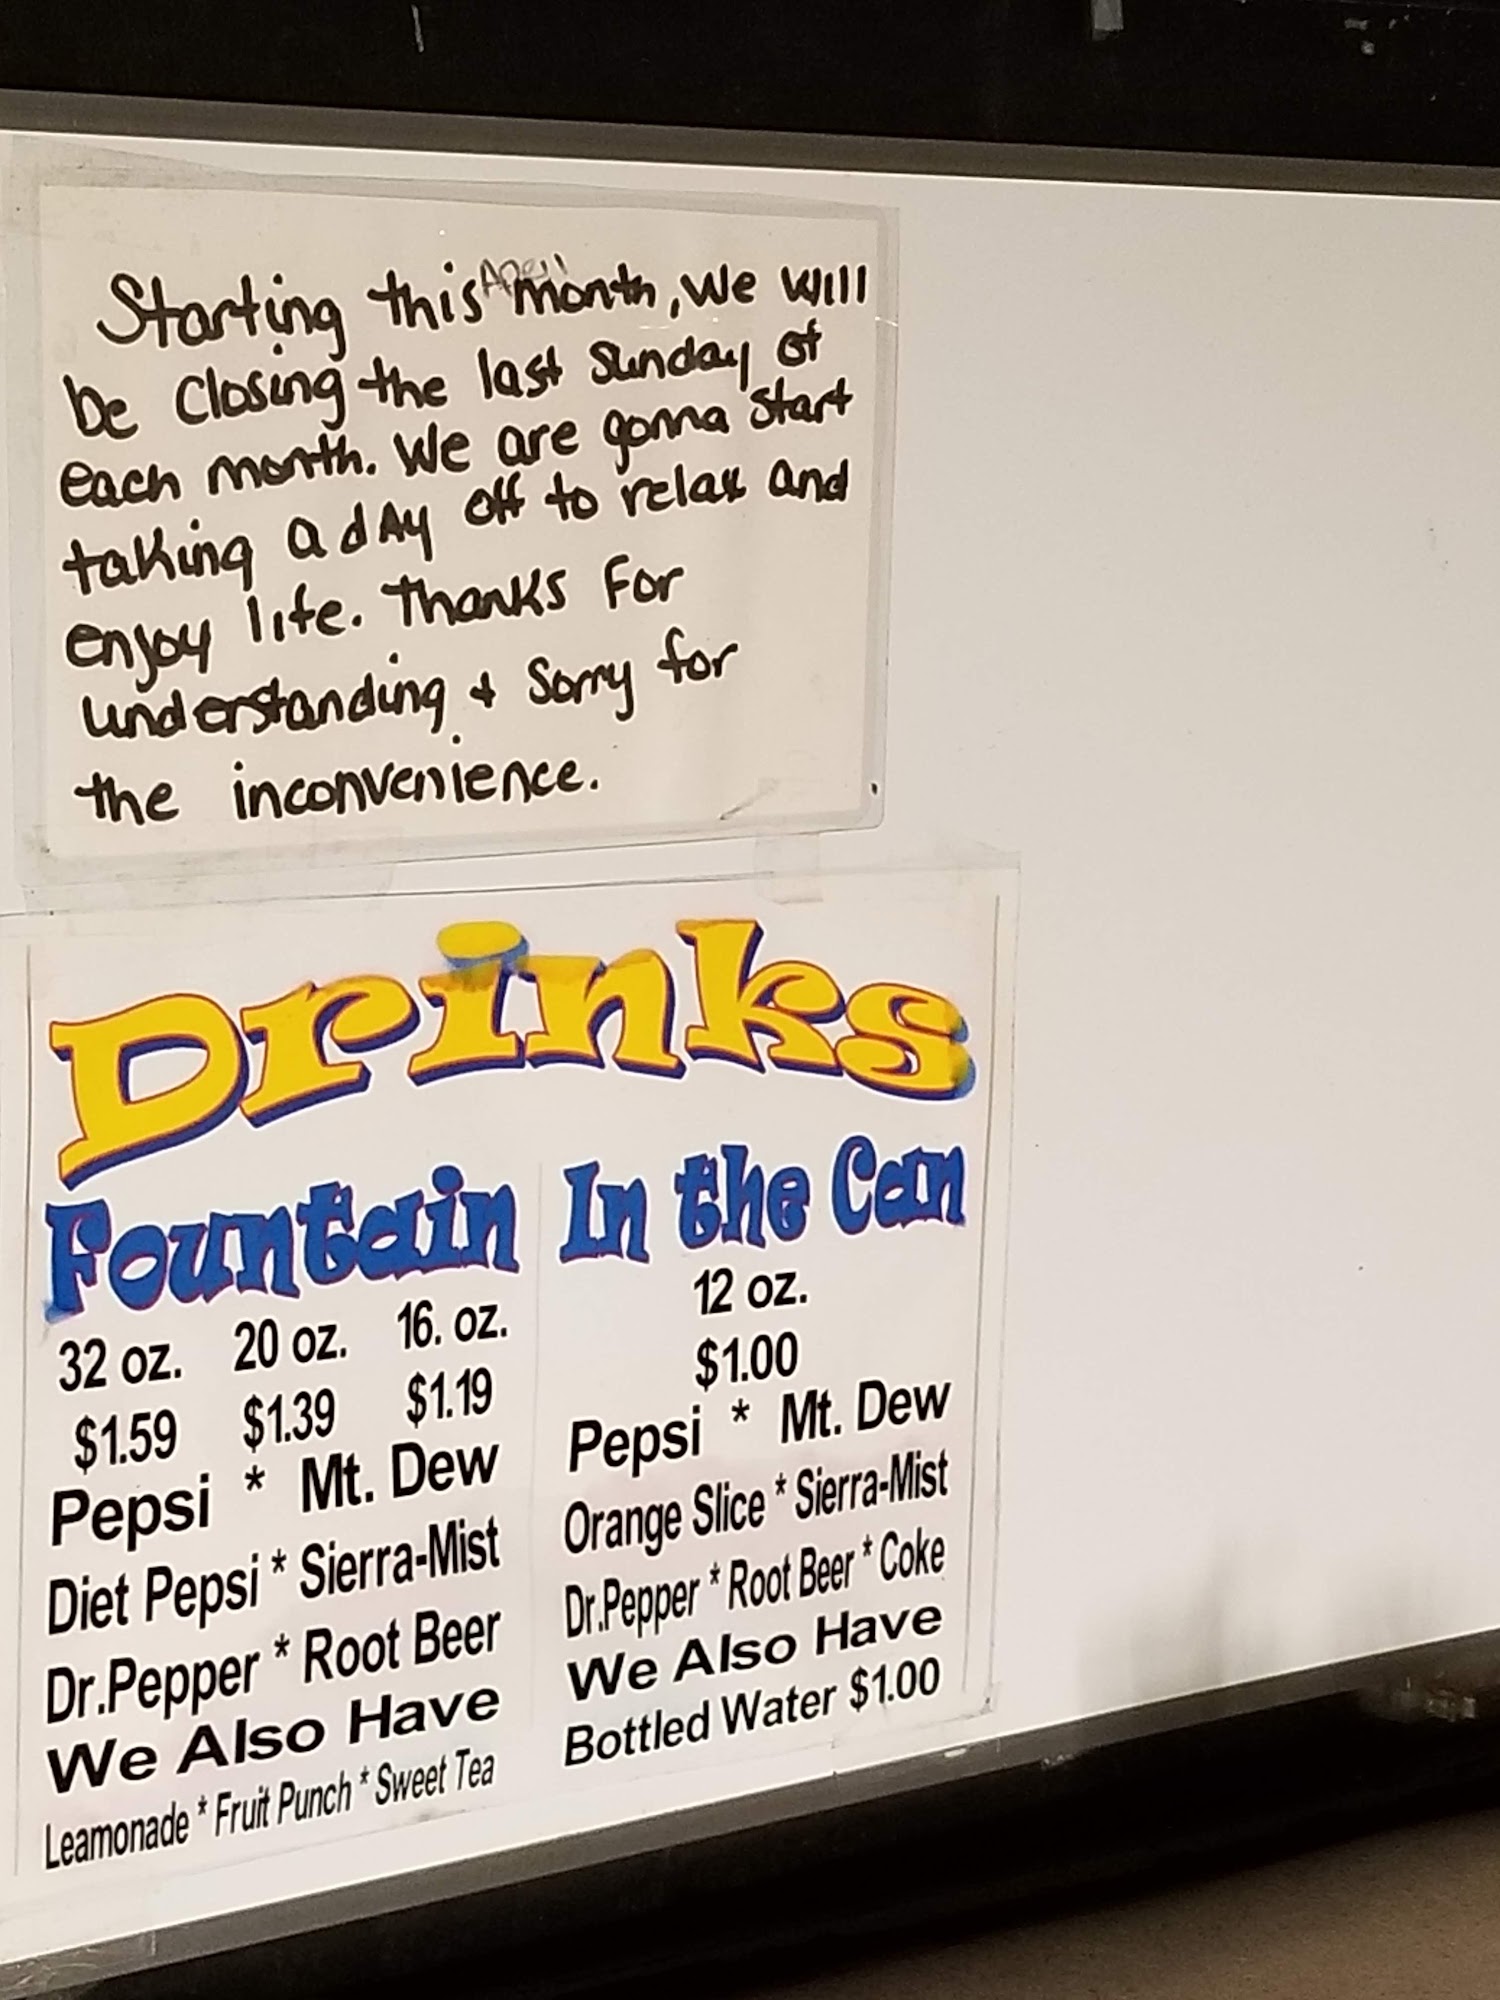 Starting this April month, we will
be closing the last Sunday of
each month. We are gonna start
taking a day off to relax and
enjoy life. Thanks For
understanding + Sorry for
the inconvenience.
Drinks
Fountain
32 oz. 20 oz. 16. oz.
$1.59 $1.39 $1.19
Pepsi * Mt. Dew
Diet Pepsi * Sierra-Mist
Dr.Pepper * Root Beer
We Also Have
Leamonade * Fruit Punch * Sweet Tea
In the Can
12 oz.
$1.00
Pepsi * Mt. Dew
Orange Slice * Sierra-Mist
Dr.Pepper * Root Beer * Coke
We Also Have
Bottled Water $1.00